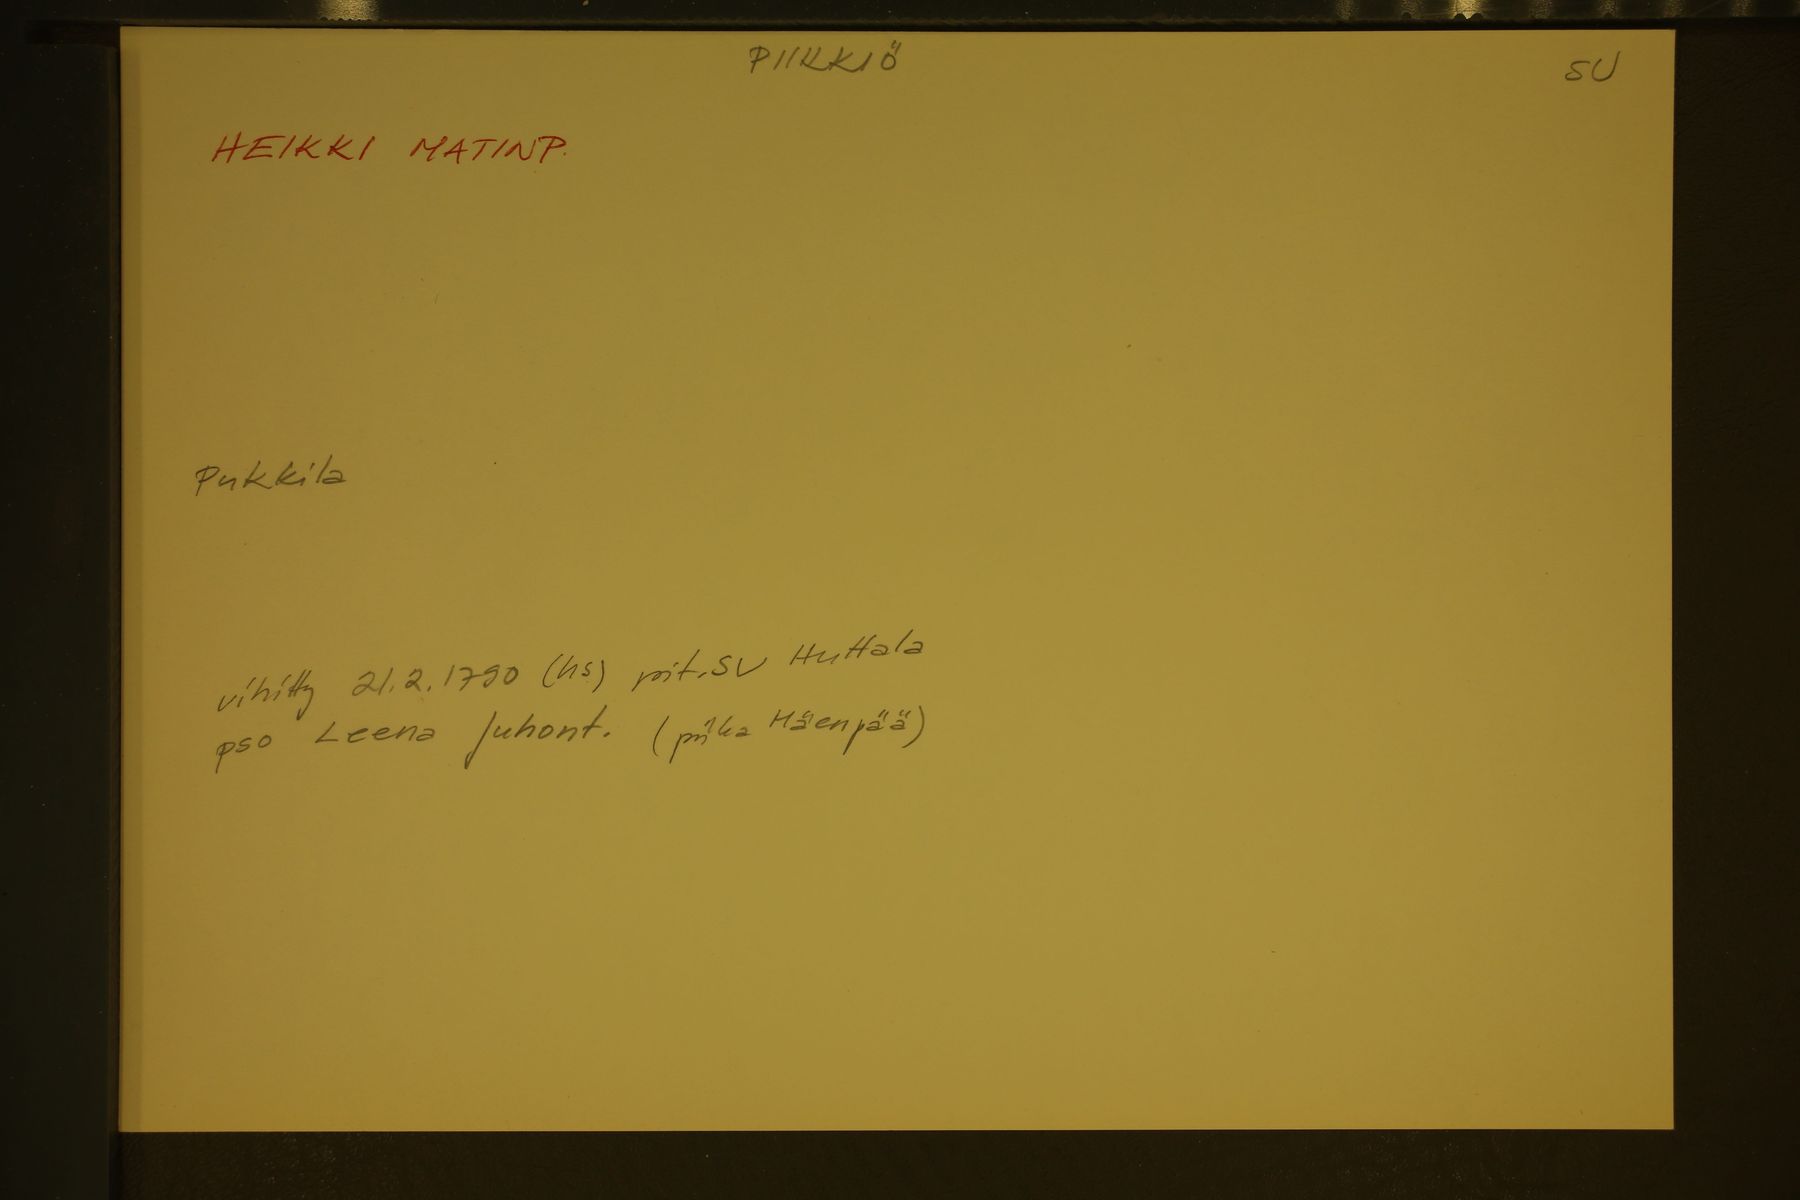 PIIKKIÖ SU
HEIKKI MATINP.
Pukkila
vihitty 21.2.1790 (hs) pit. SU Huttala
pso Leena Juhont. (piika Mäenpää)